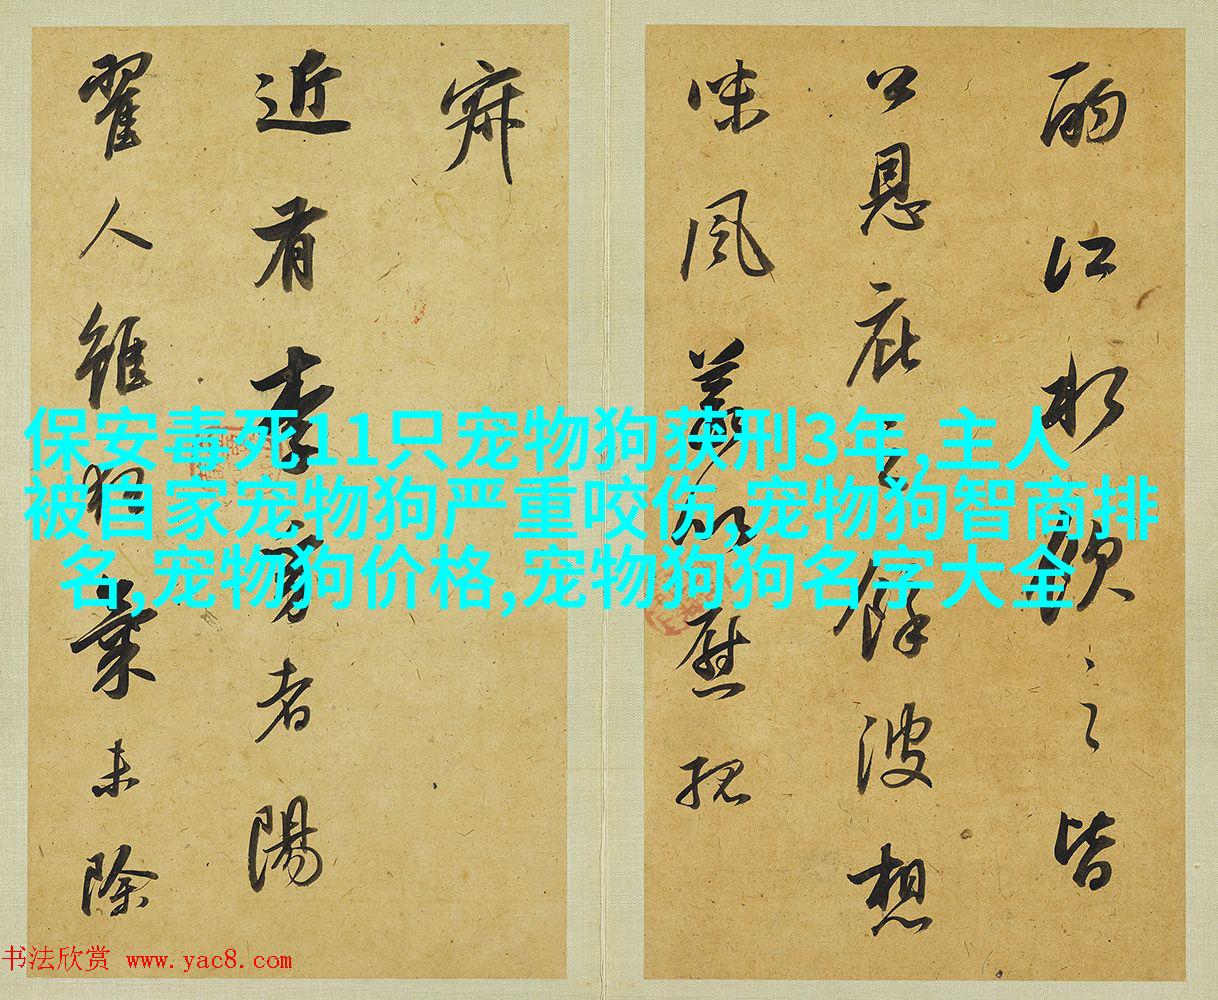 雨江水飲之皆
公恩庇之餘波想
味風義以慰
保安毒死11只宠物狗获刑3年,主人
被自家宠物狗严重咬伤,宠物狗智商排
名,宠物狗价格,宠物狗狗名字大全
近有李易者陽
翟人雖
業未除
书法欣赏 www.yac8.com